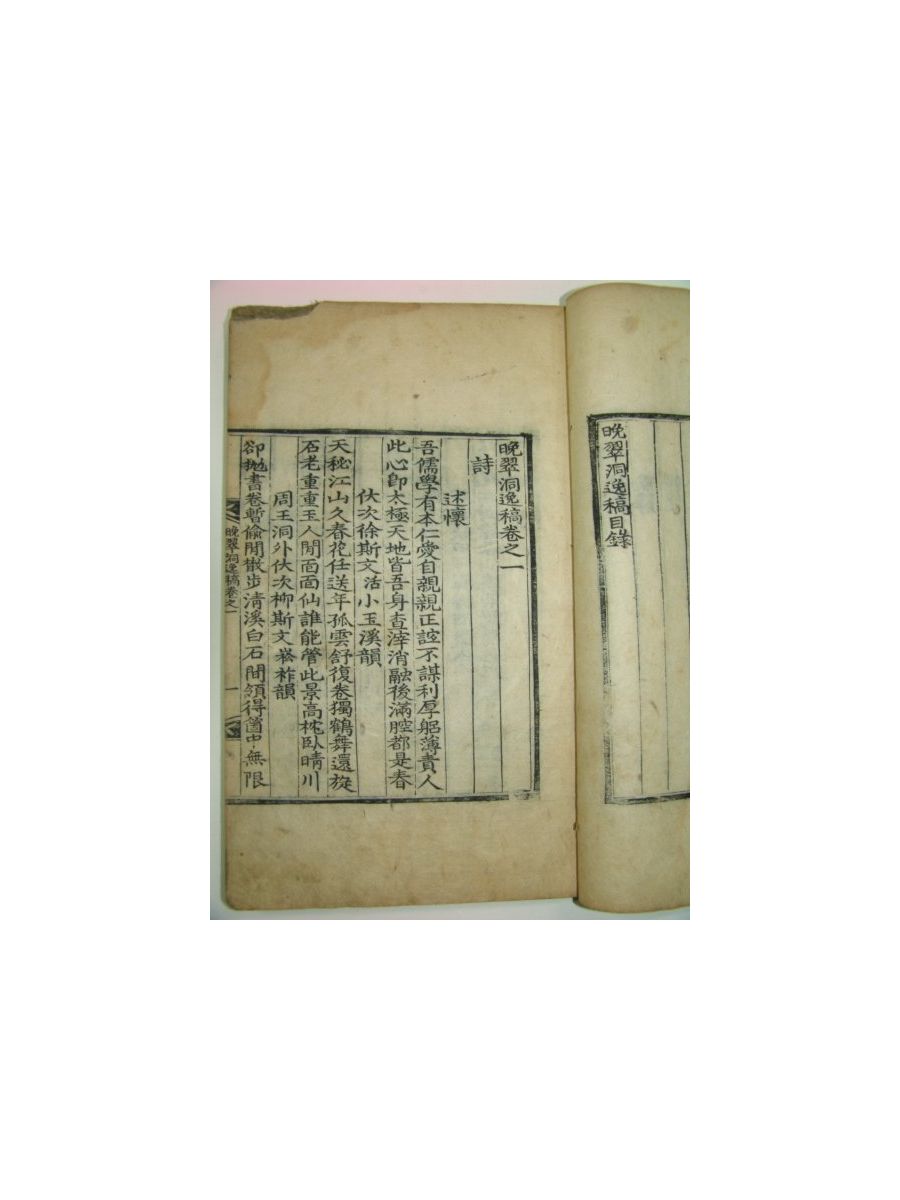 晚翠洞逸稿目錄
晚翠洞逸稿卷之一
詩
述懷
吾儒學有本仁愛自親親正誼不謀利厚躬薄責人
此心卽太極天地皆吾身查滓消融後滿腔都是春
伏次徐斯文活小玉溪韻
天秘江山久春花任送年孤雲舒復卷獨鶴舞還旋
石老重重玉人閒面面仙誰能管此景高枕臥晴川
周王洞外伏次柳斯文崧祚韻
卻抛書卷暫偸閒散步淸溪白石間領得箇中無限
晚翠洞逸稿卷之一 一